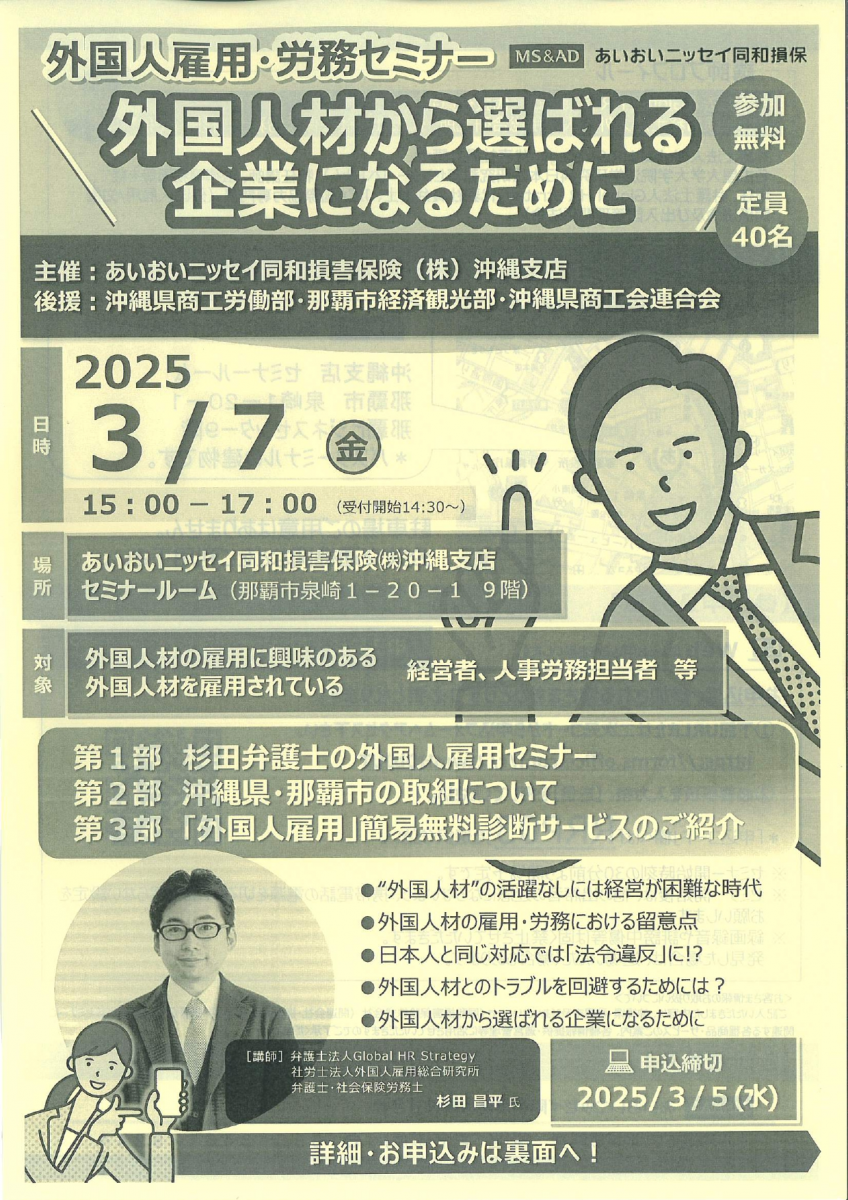 外国人雇用・労務セミナー
MS&AD あいおいニッセイ同和損保
外国人材から選ばれる
企業になるために
参加
無料
定員
40名
主催：あいおいニッセイ同和損害保険（株）沖縄支店
後援：沖縄県商工労働部・那覇市経済観光部・沖縄県商工会連合会
日時
2025
3/7 金
15：00－17：00 （受付開始14:30～）
場所
あいおいニッセイ同和損害保険㈱沖縄支店
セミナールーム（那覇市泉崎１－２０－１ 9階）
対象
外国人材の雇用に興味のある
外国人材を雇用されている
経営者、人事労務担当者 等
第１部 杉田弁護士の外国人雇用セミナー
第２部 沖縄県・那覇市の取組について
第３部 「外国人雇用」簡易無料診断サービスのご紹介
●“外国人材”の活躍なしには経営が困難な時代
●外国人材の雇用・労務における留意点
●日本人と同じ対応では「法令違反」に!?
●外国人材とのトラブルを回避するためには？
●外国人材から選ばれる企業になるために
［講師］弁護士法人Global HR Strategy
社労士法人外国人雇用総合研究所
弁護士・社会保険労務士
杉田 昌平 氏
申込締切
2025/3/5(水)
詳細・お申込みは裏面へ！